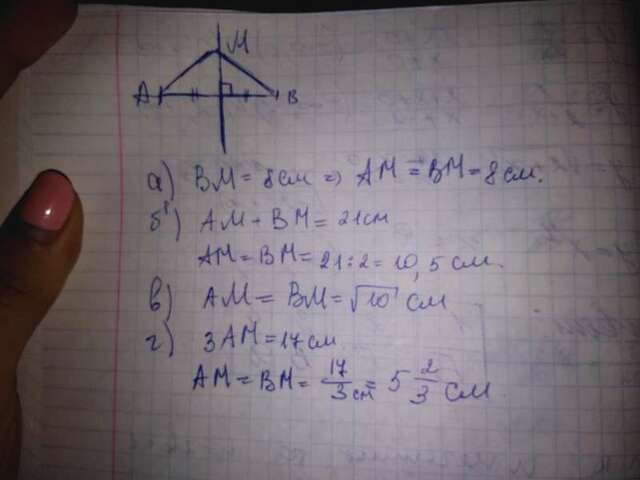 M
A B
а) BM = 8 см ⇒ AM = BM = 8 см.
б) AM + BM = 21 см
AM = BM = 21 : 2 = 10,5 см.
в) AM = BM = √10 см
г) 3AM = 17 см
AM = BM = 17/3 см = 5 2/3 см